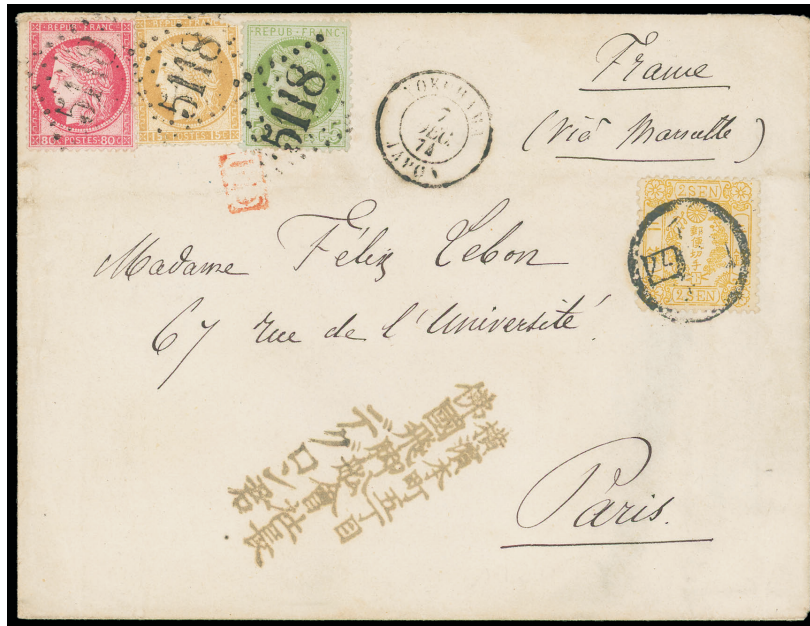 REPUB·FRANC·
80c POSTES 80c
5118
REPUB·FRANC·
15c
5118
REPUB·FRANC·
5118
YOKOHAMA
7
DEC.
74
JAPON
PD
France
(Viâ Marseille)
2 SEN
郵便切手
(2 SEN)
Madame Félix Lebon
67 rue de l'Université
Paris.
横濱本町五丁目
佛國飛脚舩會社長
デグロン君